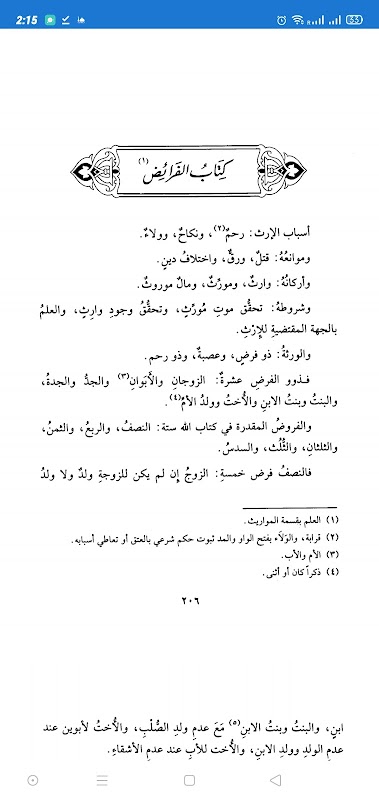 2:15
33
كِتَابُ الفَرائِض (١)
أسباب الإرث: رحمٌ(٢)، ونكاحٌ، وولاءٌ.
وموانعُهُ: قتلٌ، ورقٌّ، واختلافُ دينٍ.
وأركانُهُ: وارثٌ، ومورِّثٌ، ومالٌ موروثٌ.
وشروطهُ: تحقُّق موتِ مُورِّثٍ، وتحقُّقُ وجودِ وارِثٍ، والعلمُ
بالجهة المقتضيةِ للإِرْثِ.
والورثةُ: ذو فرضٍ، وعصبةٌ، وذو رحم.
فـذوو الفرضِ عشرةٌ: الزوجانِ والأَبَوانِ(٣) والجدُّ والجدةُ،
والبنتُ وبنتُ الابنِ والأُختُ وولدُ الأمِّ(٤).
والفروضُ المقدرة في كتاب الله ستة: النصفُ، والربعُ، والثمنُ،
والثلثانِ، والثُّلُث، والسدسُ.
فالنصفُ فرض خمسةٍ: الزوجُ إن لم يكن للزوجةِ ولدٌ ولا ولدُ
(١) العلم بقسمة المواريث.
(٢) قرابة، والوَلَاء بفتح الواو والمد ثبوت حكم شرعي بالعتق أو تعاطي أسبابه.
(٣) الأم والأب.
(٤) ذكراً كان أو أنثى.
٢٠٦
ابنٍ، والبنتُ وبنتُ الابنِ(٥) مَعَ عدمِ ولدِ الصُّلْبِ، والأُختُ لأبوين عند
عدمِ الولدِ وولدِ الابنِ، والأُخت للأبِ عند عدمِ الأشقاءِ.